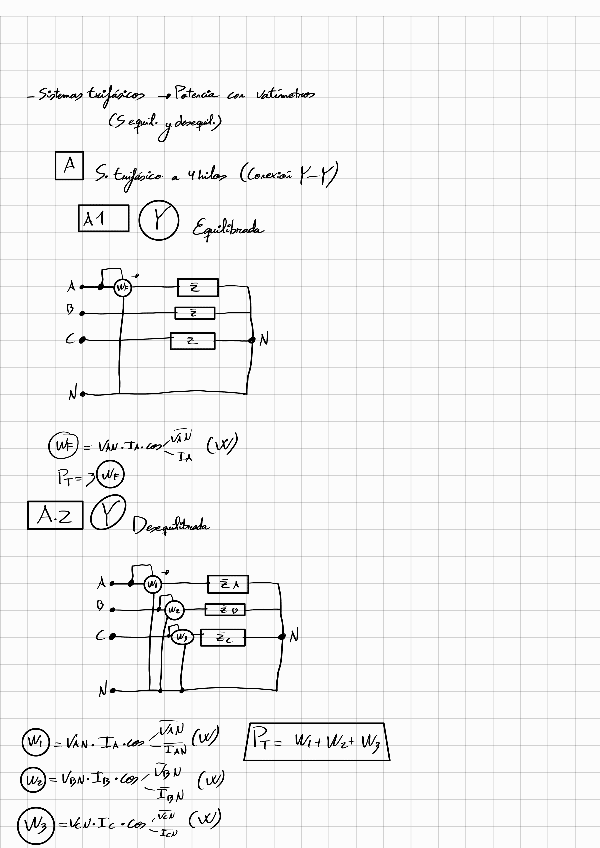 - Sistemas trifásicos → Potencia con vatímetros
(S equil. y desequil.)
A S. trifásico a 4 hilos (Conexión Y-Y)
A1 Y Equilibrada
A WF Z̅
B Z̅
C Z N
N
WF = VAN · IA · cos V̅AN I̅A (W)
PT = 3 WF
A.2 Y Desequilibrada
A W1 Z̅A
B W2 Z̅B
C W3 Z̅C N
N
W1 = VAN · IA · cos V̅AN I̅AN (W) PT = W1 + W2 + W3
W2 = VBN · IB · cos V̅BN I̅BN (W)
W3 = VCN · IC · cos V̅CN I̅CN (W)